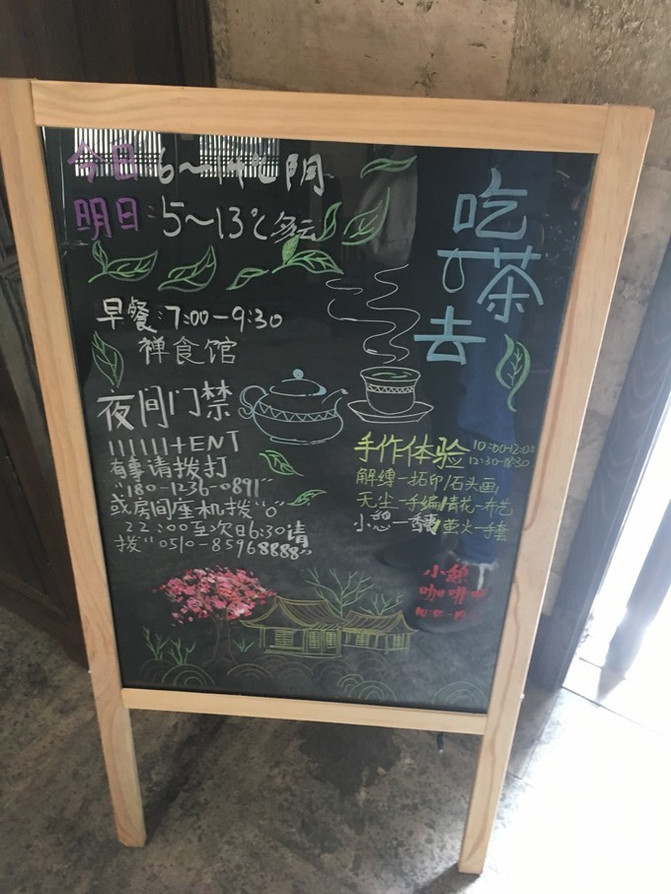 今日:6~14℃阴
明日:5~13℃多云
吃茶去
早餐:7:00-9:30
禅食馆
夜间门禁
111111+ENT
有事请拨打
"180-1236-0891"
或房间座机拨"0"
22:00至次日6:30请
拨"0510-85968888"
手作体验 10:00-12:00
12:30-18:30
解缚-拓印/石头画
无尘-手编/青花-布艺
小憩-香囊/萤火-手套
小憩
咖啡吧